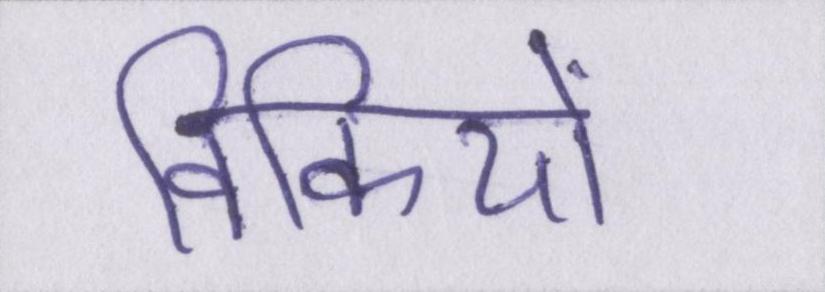 विकियों